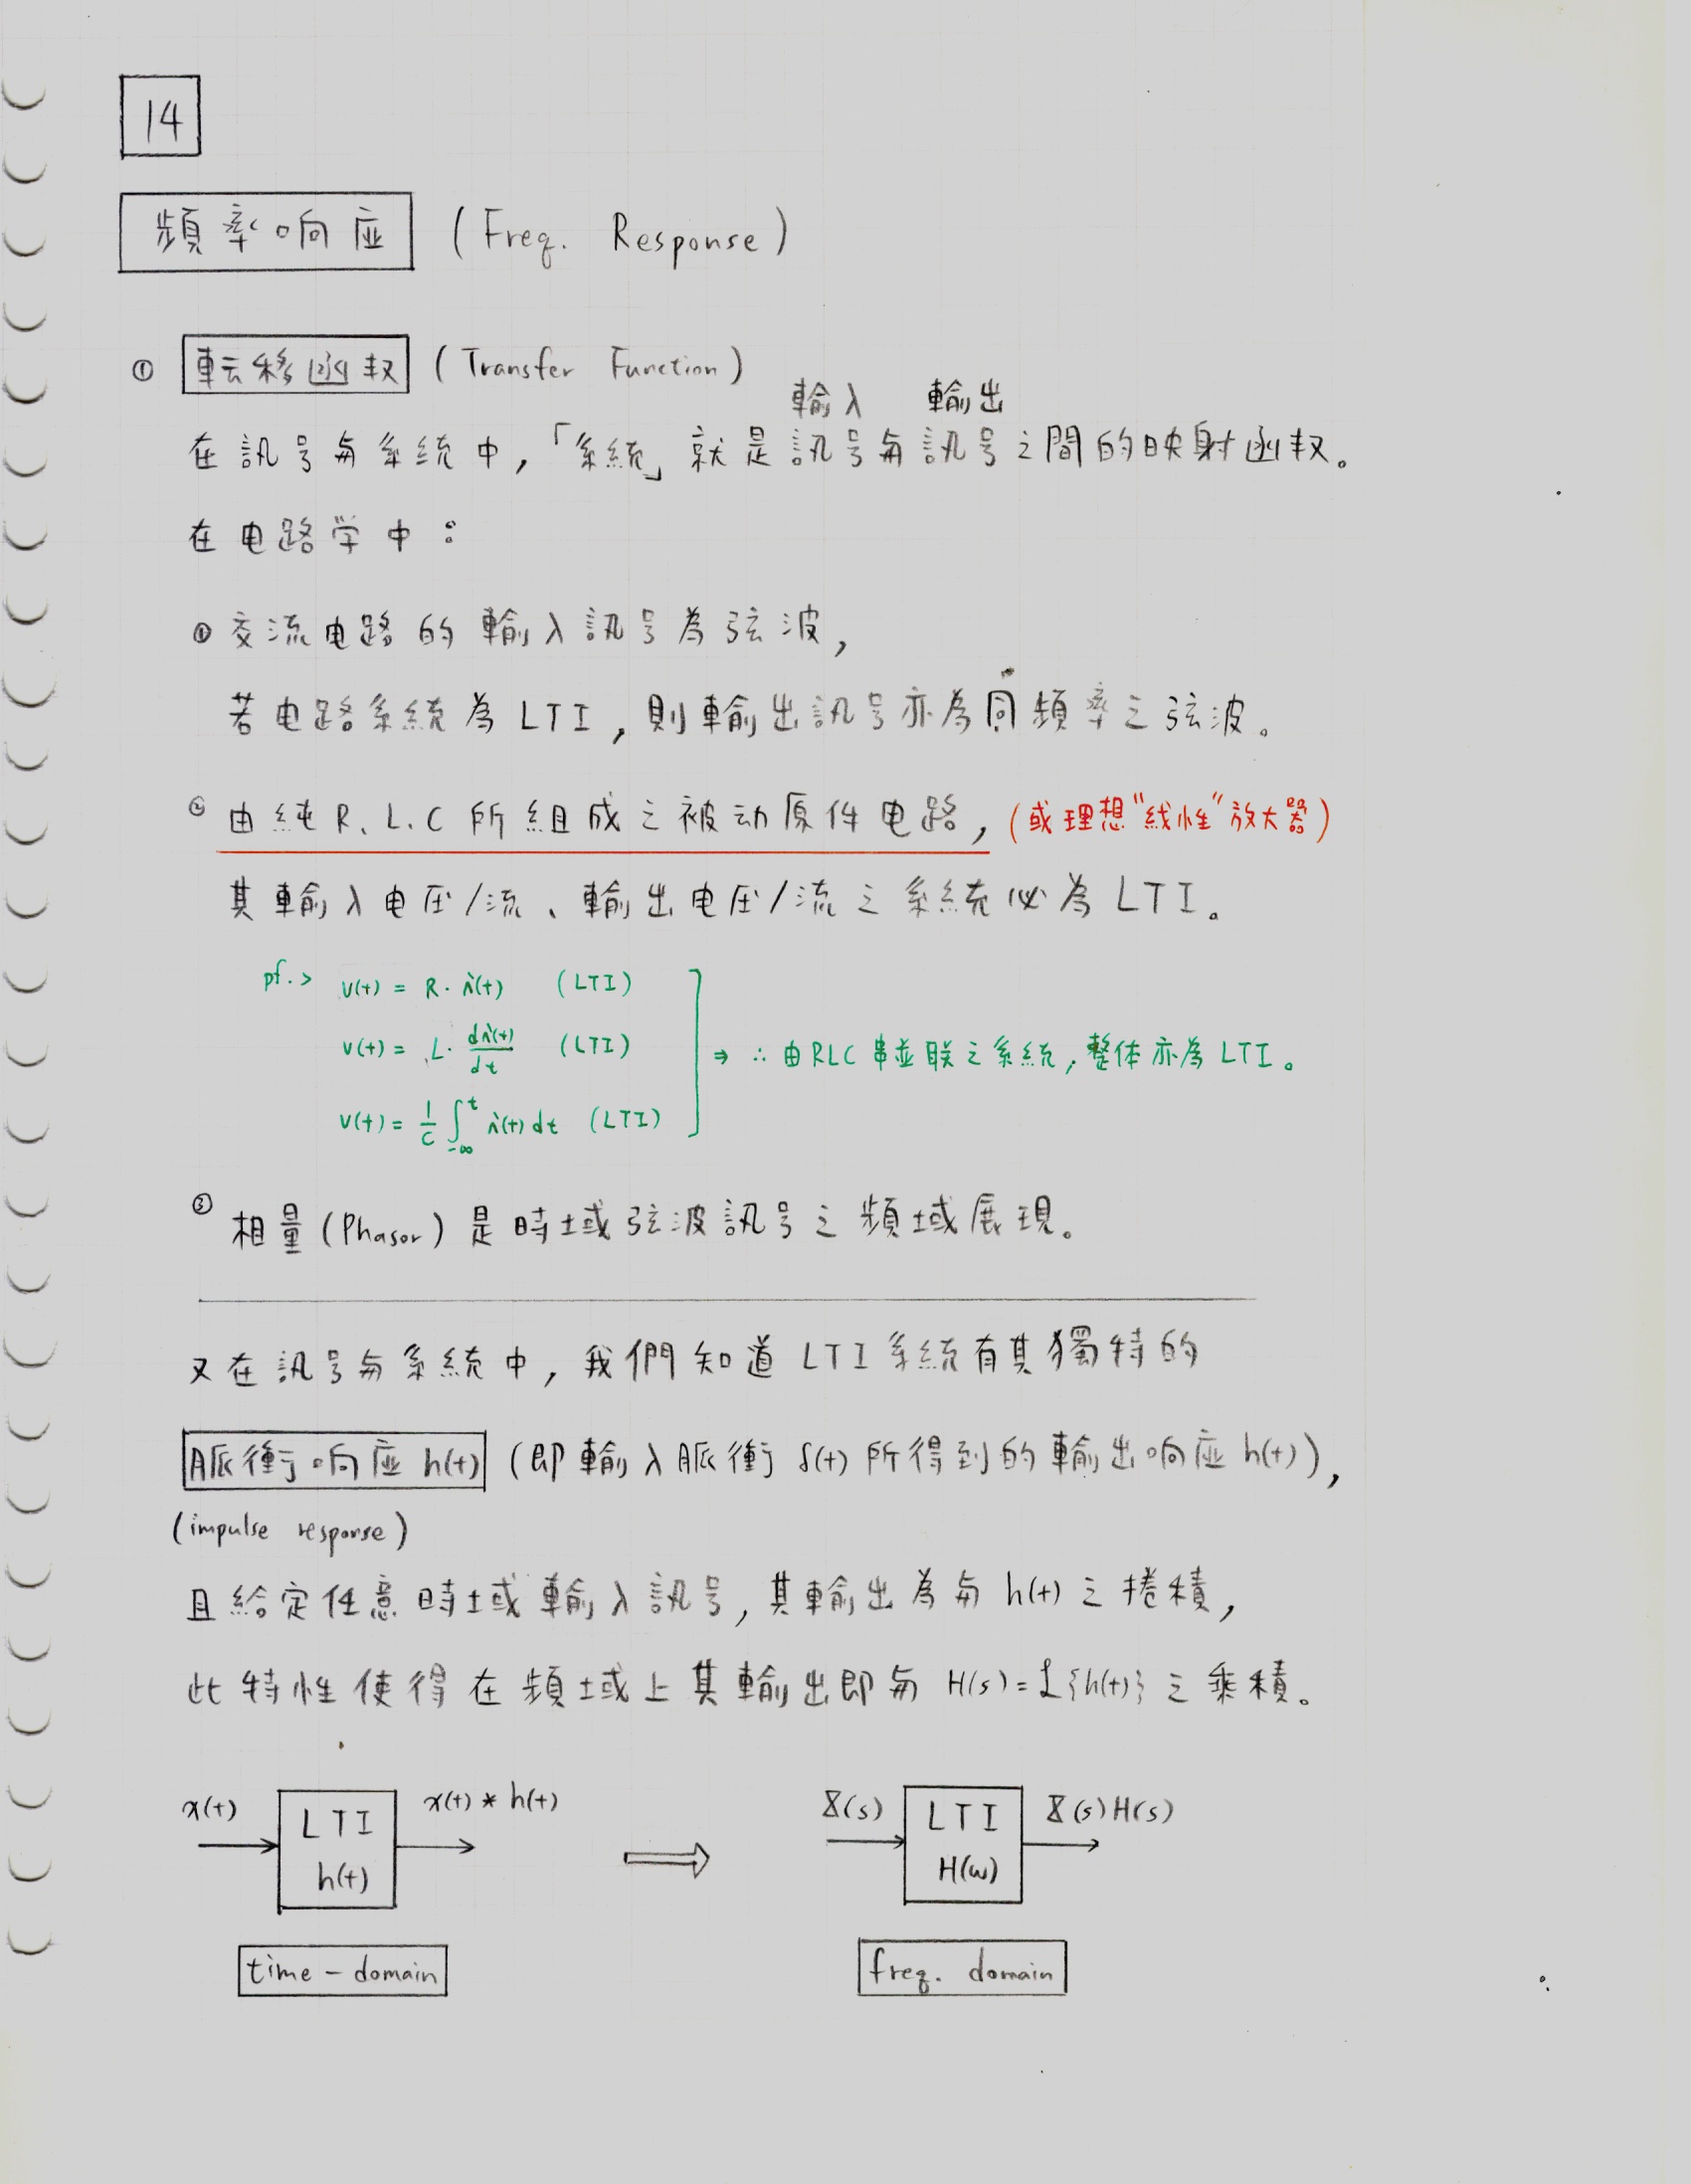 14
頻率响应 (Freq. Response)
① 転移函数 (Transfer Function)
輸入 輸出
在訊号与系統中,「系統」就是訊号与訊号之間的映射函数。
在电路学中:
① 交流电路的輸入訊号為弦波,
若电路系統為LTI,則輸出訊号亦為同頻率之弦波。
② 由純R、L、C所組成之被动原件电路, (或理想"线性"放大器)
其輸入电压/流、輸出电压/流之系統必為LTI。
pf.> v(t) = R · i(t) (LTI)
v(t) = L · di(t)/dt (LTI)
⇒ ∴由RLC串並联之系統,整体亦為LTI。
v(t) = 1/C ∫_{-∞}^{t} i(t) dt (LTI)
③ 相量(Phasor)是時域弦波訊号之頻域展現。
又在訊号与系統中,我們知道LTI系統有其獨特的
脈衝响应 h(t) (即輸入脈衝 δ(t) 所得到的輸出响应 h(t)),
(impulse response)
且給定任意時域輸入訊号,其輸出為与 h(t) 之捲積,
此特性使得在頻域上其輸出即与 H(s) = ℒ{h(t)} 之乘積。
x(t) LTI h(t) x(t) * h(t) ⇒ X(s) LTI H(ω) X(s)H(s)
time-domain freq. domain